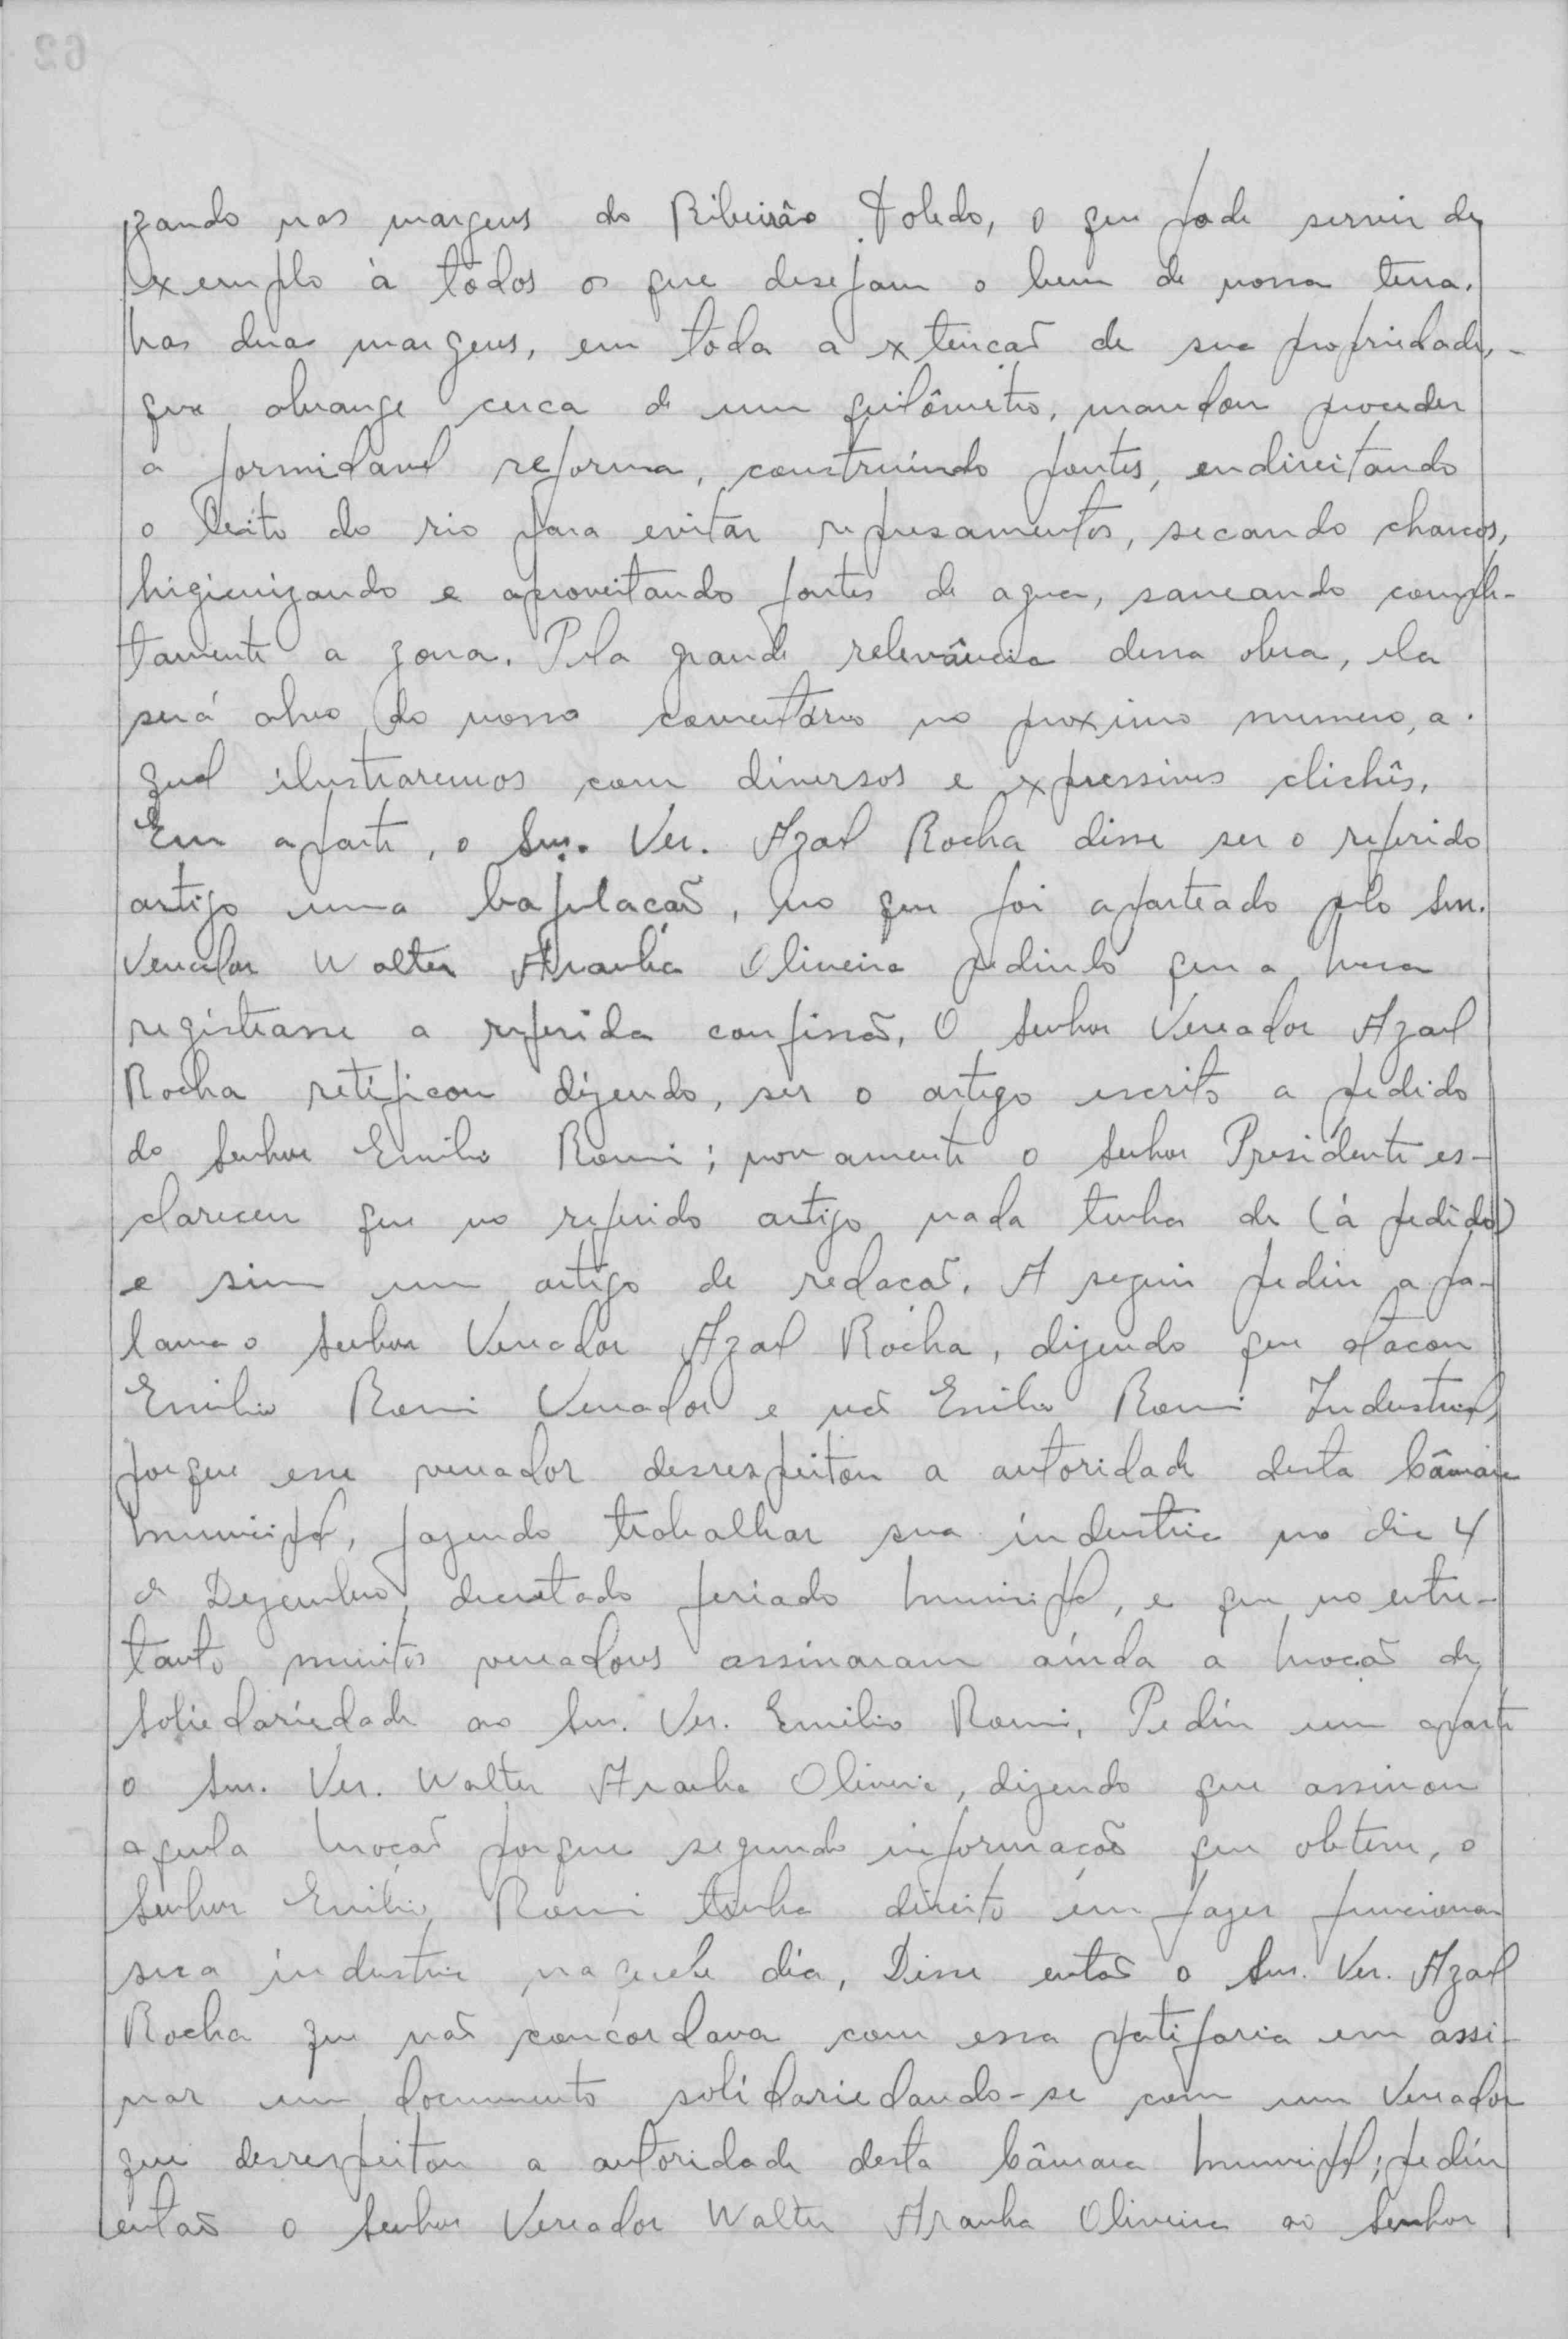 zando nas margens do Ribeirão Toledo, o que pode servir de
exemplo à todos os que desejam o bem de nossa terra.
Nas duas margens, em toda a extenção de sua propriedade,-
que abrange cerca de um quilômetro, mandou proceder
a formidavel reforma, construindo pontes, endireitando
o leito do rio para evitar represamentos, secando charcos,
higienizando e aproveitando fontes de agua, saneando comple-
tamente a zona. Pela grande relevância dessa obra, ela
será alvo do nosso comentário no proximo numero, a
qual ilustraremos com diversos e expressivos clichês.
Em aparte, o Snr. Ver. Azael Rocha disse ser o referido
artigo uma bajulação, no que foi aparteado pelo Snr.
Vereador Walter Aranha Oliveira pedindo que a Mesa
registrasse a referida confissão. O Senhor Vereador Azael
Rocha retificou dizendo, ser o artigo escrito a pedido
do Senhor Emilio Romi; novamente o Senhor Presidente es-
clareceu que no referido artigo nada tinha de (à pedido)
e sim um artigo de redação. A seguir pediu a pa-
lavra o Senhor Vereador Azael Rocha, dizendo que atacou
Emilio Romi Vereador e não Emilio Romi Industrial,
porque esse vereador desrespeitou a autoridade desta Câmara
Municipal, fazendo trabalhar sua industria no dia 4
de Dezembro, decretado feriado Municipal, e que no entre-
tanto muitos vereadores assinaram ainda a Moção de
Soliedariedade ao Snr. Ver. Emilio Romi. Pediu um aparte
o Snr. Ver. Walter Aranha Oliveira, dizendo que assinou
aquela Moção porque segundo informações que obteve, o
Senhor Emilio Romi tinha direito em fazer funcionar
sua industria naquele dia. Disse então o Snr. Ver. Azael
Rocha que não concordava com essa patifaria em assi-
nar um documento solidariedando-se com um Vereador
que desrespeitou a autoridade desta Câmara Municipal; pediu
então o Senhor Vereador Walter Aranha Oliveira ao Senhor